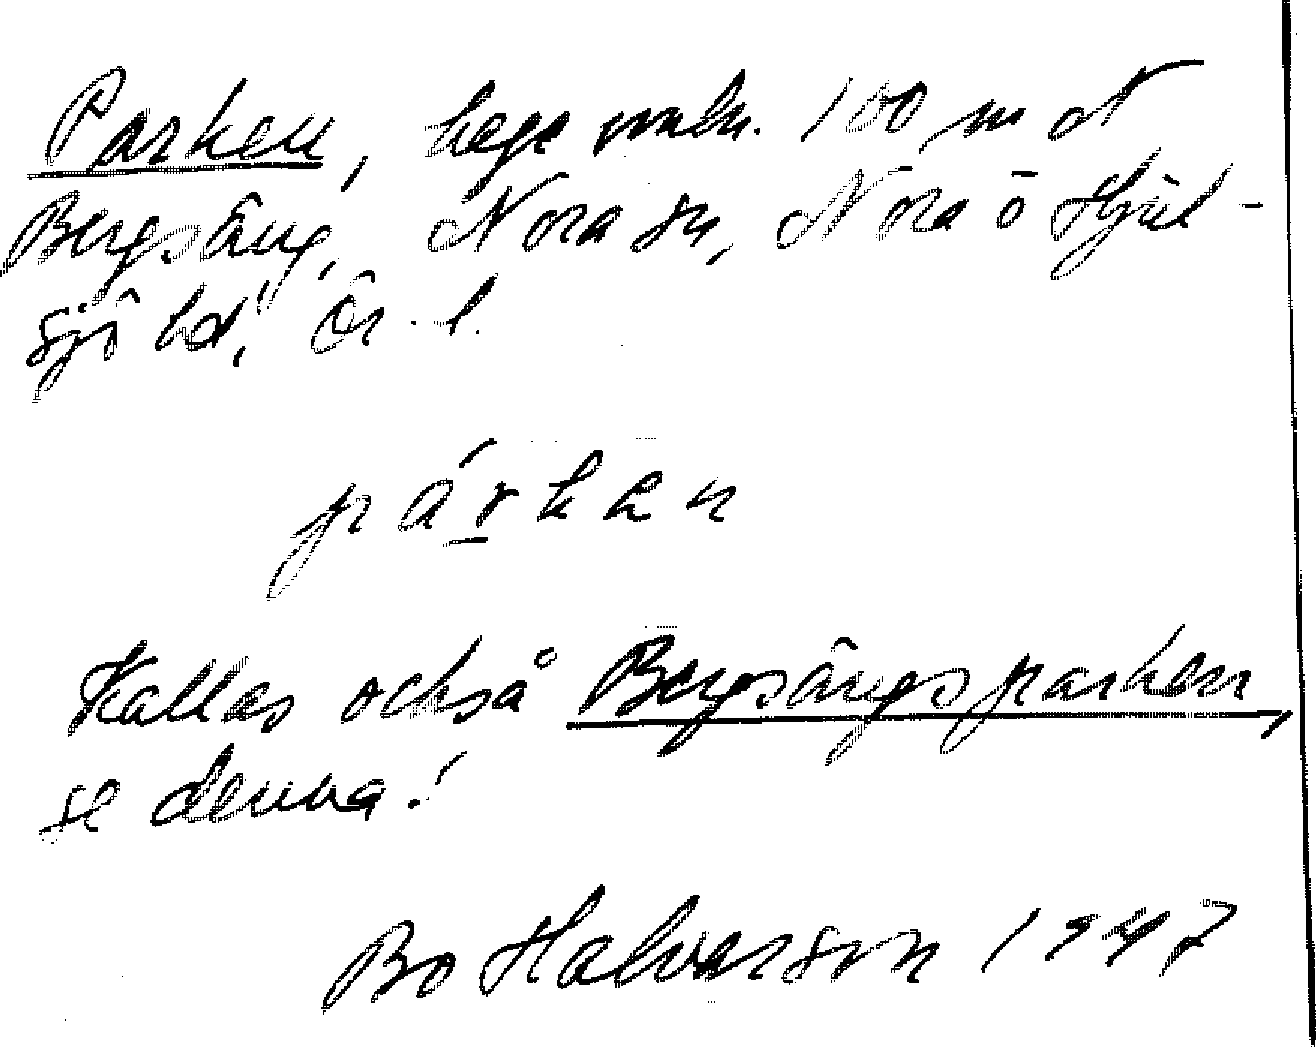 Parken, hage omkr. 100 m åt
Bergsäng, Nora sn, Nora ö Hjul-
sjö bd, Ör. l.
párkan
Kallas också Bergsängsparken,
se denna!
Bo Halvarson 1947